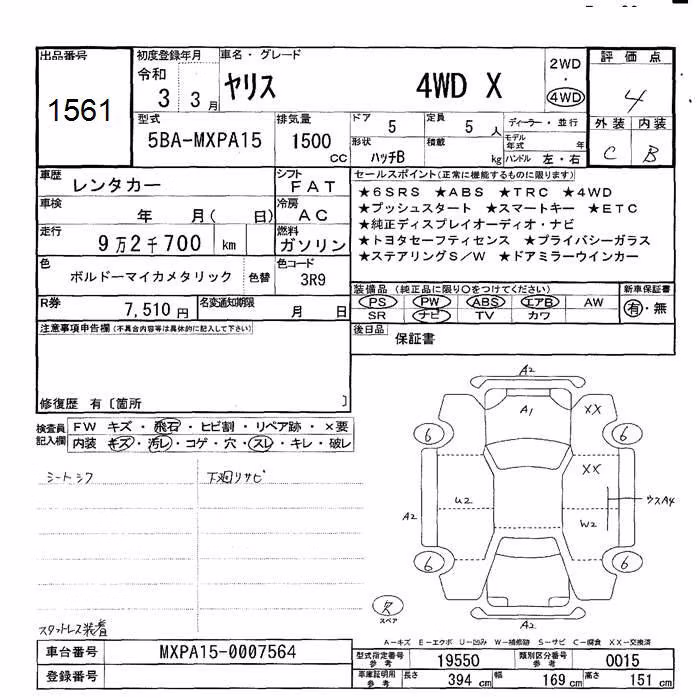 出品番号
1561
初度登録年月
令和
3 3月
車名・グレード
ヤリス 4WD X
2WD
・
4WD
評価点
4
型式
5BA-MXPA15
排気量
1500
cc
ドア
5
定員
5 人
形状
ハッチB
積載
kg
ディーラー・並行
モデル
年式 年
ハンドル 左・右
外装 内装
C B
車歴
レンタカー
シフト
FAT
車検
年 月( 日)
冷房
AC
走行
9万2千700 km
燃料
ガソリン
色
ボルドーマイカメタリック
色替
色コード
3R9
R券
7,510円
名変通知期限
月 日
セールスポイント(正常に機能するものに限ります)
★6SRS ★ABS ★TRC ★4WD
★プッシュスタート ★スマートキー ★ETC
★純正ディスプレイオーディオ・ナビ
★トヨタセーフティセンス ★プライバシーガラス
★ステアリングS/W ★ドアミラーウインカー
装備品(純正品に限り○をつけてください)
PS PW ABS エアB AW
SR ナビ TV カワ
新車保証書
有・無
注意事項申告欄(不具合内容等は具体的に記入して下さい)
後日品
保証書
修復歴 有〔箇所 〕
検査員
記入欄
FW キズ・飛石・ヒビ割・リペア跡・×要
内装 キズ・汚レ・コゲ・穴・スレ・キレ・破レ
シートシワ
下廻りサビ
スタットレス装着
A2
A1
XX
6
6
XX
U2
W2
ウスA4
A2
6
6
欠
スペア
A2
A-キズ E-エクボ U-凹み W-補修跡 S-サビ C-腐食 XX-交換済
車台番号
MXPA15-0007564
登録番号
型式指定番号
参考
19550
類別区分番号
参考
0015
車庫証明用
参考
長さ
394 cm
幅
169 cm
高さ
151 cm